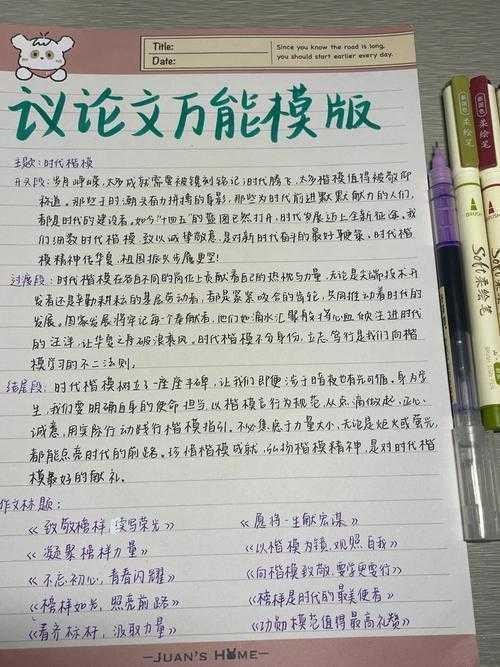 Title:
Since you know the road is long,
Date:
you should start earlier every day.
议论文万能模版
主题：时代楷模
开头段：岁月峥嵘，太多成就需要被镌刻铭记；时代腾飞，太多楷模值得被敬仰
称道。那些于时潮头奋力拼搏的身影，那些为时代前进默默献力的人们，
都是时代的建设者。如今"十四五"的蓝图已然打开，时代发展迈上全新征途。我
们细数时代楷模，致以诚挚敬意，是对新时代奋斗的最好鞭策。时代楷
模精神佑华夏，祖国振兴步履更坚！
过渡段：时代楷模在各自不同的岗位上贡献着自己的热忱与力量，无论是尖端技术开
发者还是辛勤耕耘的基层劳动者，都是紧紧咬合的齿轮，共同推动着时代的
发展。国家发展将牢记每一个奉献者，他们如滴水汇聚般将心血倾注进时代
的汪洋，让华夏之舟破浪乘风。时代楷模不分身份，立志笃行是我们向楷
模学习的不二法则。
结尾段：时代楷模树立了一座座丰碑，让我们即便涉于暗夜也有光可循。身为学
生，我们要明确自身的使命担当，以楷模言行为规范，从点滴做起，正心
诚意，用实际行动践行楷模指引。不必焦虑于力量大小，无论是炬火或萤光，
都能点亮时代的前路。珍惜楷模成就，弘扬楷模精神，是对时代楷
模最好的献礼。
作文标题：
《致敬榜样，续写荣光》 《愿将一生献宏谋》
《凝聚榜样力量》 《以楷模为镜，观照自我》
《不忘初心，青春闪耀》 《向楷模致敬，要学更要行》
《榜样如光，照亮前路》 《榜样是时代的最美使者》
《看齐标杆，汲取力量》 《功勋模范值得最高礼赞》
JUAN'S HOME